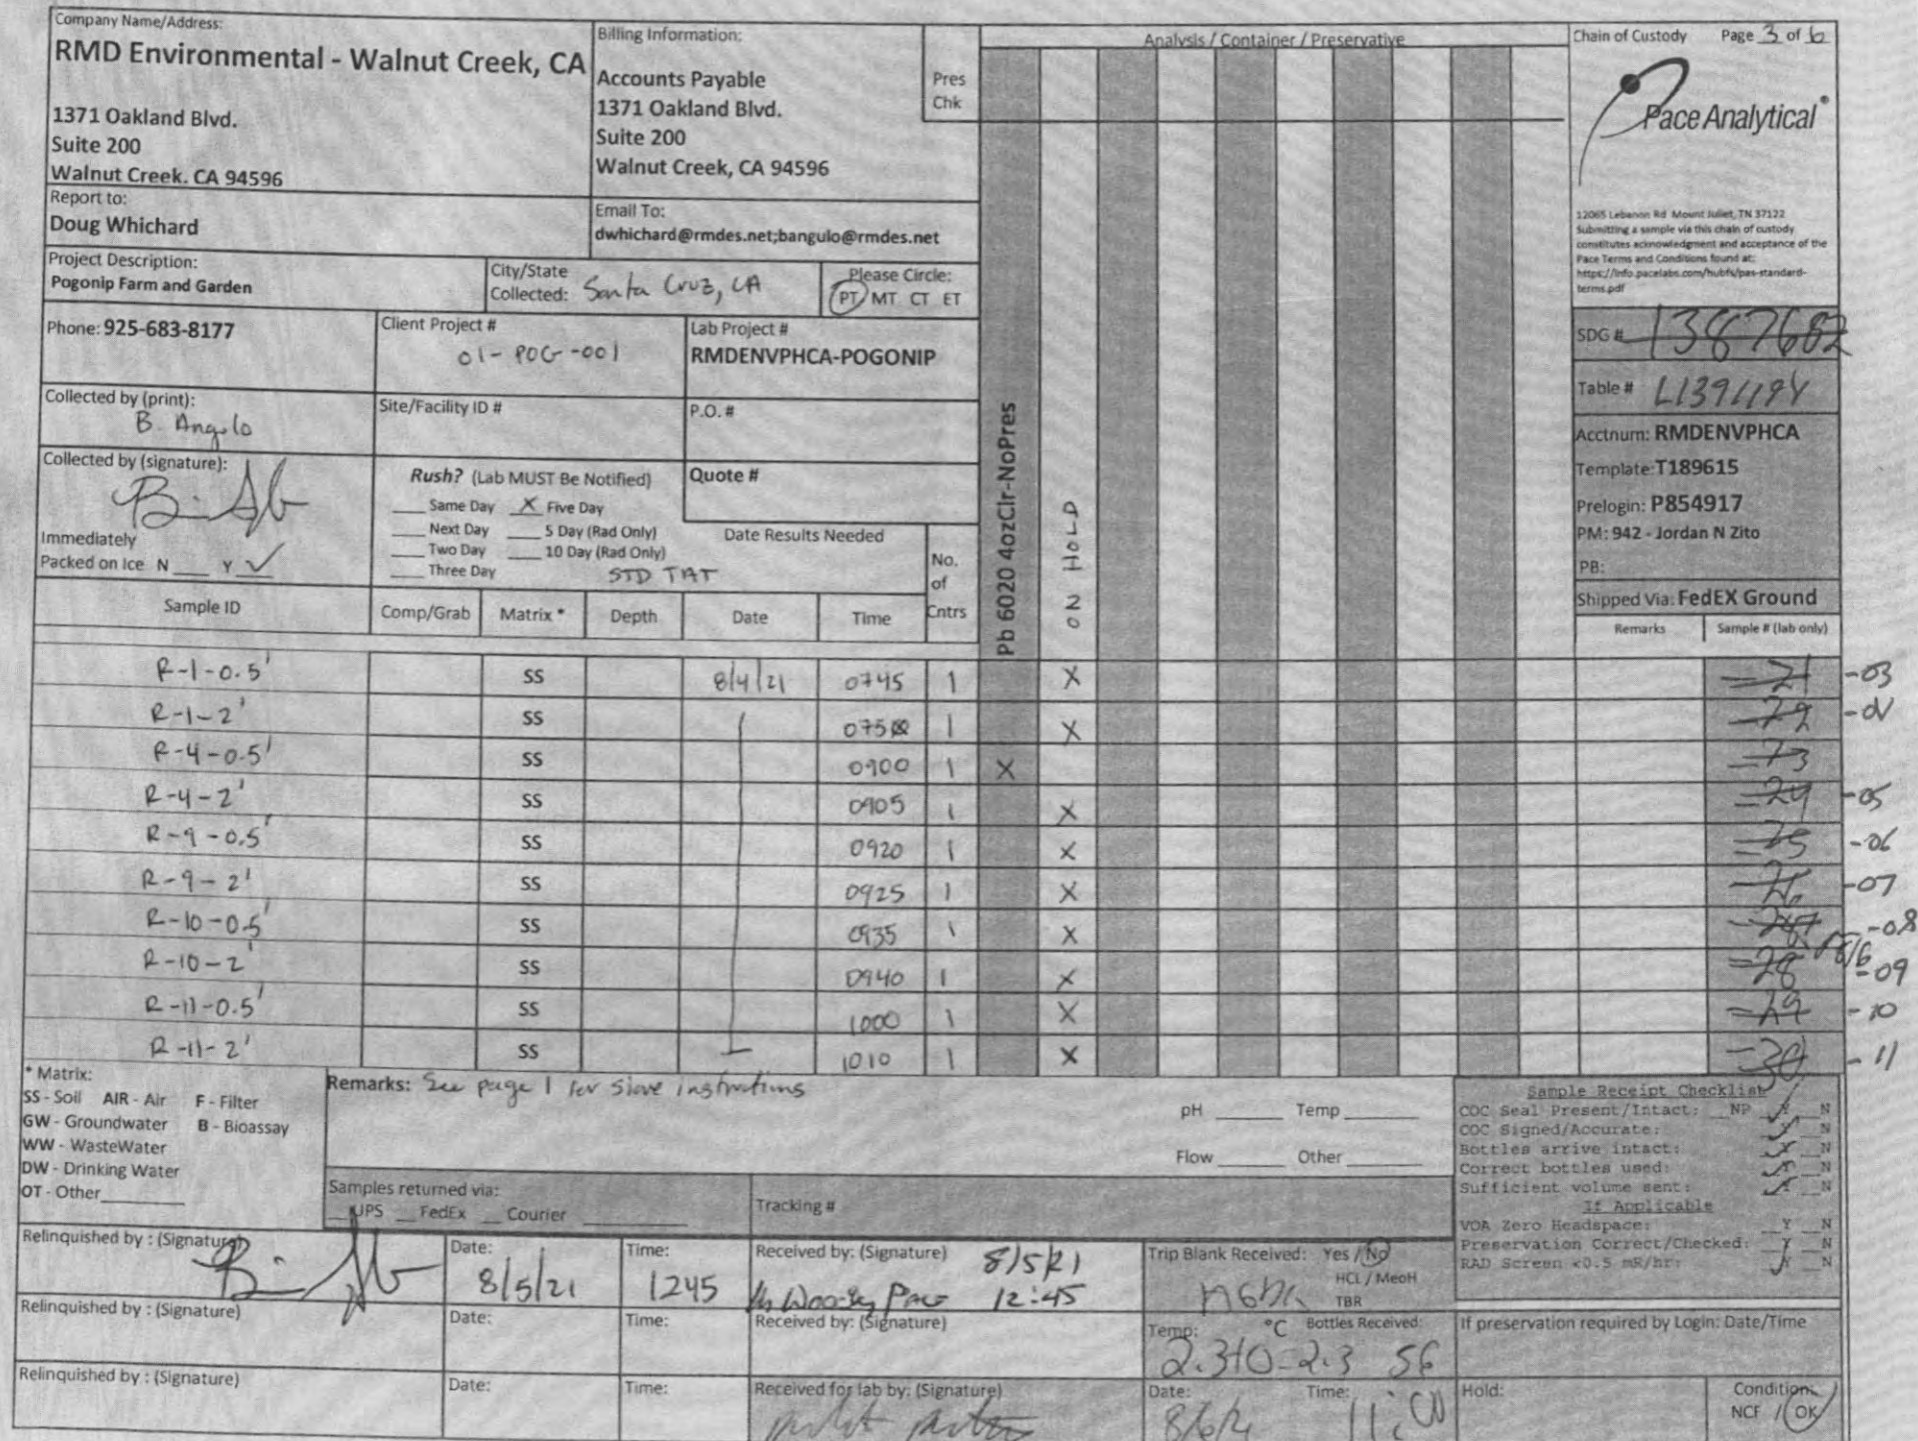 Company Name/Address:
RMD Environmental - Walnut Creek, CA
1371 Oakland Blvd.
Suite 200
Walnut Creek. CA 94596
Billing Information:
Accounts Payable
1371 Oakland Blvd.
Suite 200
Walnut Creek, CA 94596
Pres
Chk
Analysis / Container / Preservative
Chain of Custody Page 3 of 6
Pace Analytical®
12065 Lebanon Rd Mount Juliet, TN 37122
Submitting a sample via this chain of custody
constitutes acknowledgment and acceptance of the
Pace Terms and Conditions found at:
https://info.pacelabs.com/hubfs/pas-standard-
terms.pdf
Report to:
Doug Whichard
Email To:
dwhichard@rmdes.net;bangulo@rmdes.net
Project Description:
Pogonip Farm and Garden
City/State
Collected: Santa Cruz, CA
Please Circle:
PT MT CT ET
Phone: 925-683-8177
Client Project #
01-POG-001
Lab Project #
RMDENVPHCA-POGONIP
SDG # 1387682
Table # L1391194
Collected by (print):
B. Angulo
Site/Facility ID #
P.O. #
Acctnum: RMDENVPHCA
Template:T189615
Prelogin: P854917
PM: 942 - Jordan N Zito
PB:
Shipped Via: FedEX Ground
Collected by (signature):
Immediately
Packed on Ice N ___ Y ✓
Rush? (Lab MUST Be Notified)
___ Same Day X Five Day
___ Next Day ___ 5 Day (Rad Only)
___ Two Day ___ 10 Day (Rad Only)
___ Three Day STD TAT
Quote #
Date Results Needed
No.
of
Cntrs
Pb 6020 4ozClr-NoPres
ON HOLD
Sample ID Comp/Grab Matrix * Depth Date Time Remarks Sample # (lab only)
R-1-0.5' SS 8/4/21 0745 1 X -21 -03
R-1-2' SS 0750 1 X -22 -04
R-4-0.5' SS 0900 1 X -23
R-4-2' SS 0905 1 X -24 -05
R-9-0.5' SS 0920 1 X -25 -06
R-9-2' SS 0925 1 X -26 -07
R-10-0.5' SS 0935 1 X -27 -08
R-10-2' SS 0940 1 X -28 8/6 -09
R-11-0.5' SS 1000 1 X -29 -10
R-11-2' SS 1010 1 X -30 -11
* Matrix:
SS - Soil AIR - Air F - Filter
GW - Groundwater B - Bioassay
WW - WasteWater
DW - Drinking Water
OT - Other
Remarks: See page 1 for sieve instructions
pH ___ Temp ___
Flow ___ Other ___
Samples returned via:
__ UPS __ FedEx __ Courier
Tracking #
Sample Receipt Checklist
COC Seal Present/Intact: __ NP ✓ Y __ N
COC Signed/Accurate: ✓ Y __ N
Bottles arrive intact: ✓ Y __ N
Correct bottles used: ✓ Y __ N
Sufficient volume sent: ✓ Y __ N
If Applicable
VOA Zero Headspace: __ Y __ N
Preservation Correct/Checked: __ Y __ N
RAD Screen <0.5 mR/hr: ✓ Y __ N
Relinquished by : (Signature)
Date:
8/5/21
Time:
1245
Received by: (Signature) 8/5/21
Pace 12:45
Trip Blank Received: Yes / No
HCL / MeoH
TBR
Relinquished by : (Signature)
Date:
Time:
Received by: (Signature)
Temp: °C Bottles Received:
2.3+0=2.3 56
If preservation required by Login: Date/Time
Relinquished by : (Signature)
Date:
Time:
Received for lab by: (Signature)
Date:
8/6/21
Time:
11:00
Hold:
Condition:
NCF / OK